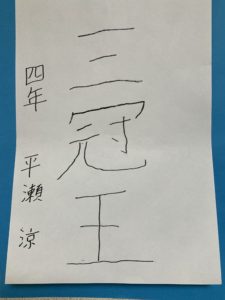 三冠王
四年 平瀬 涼